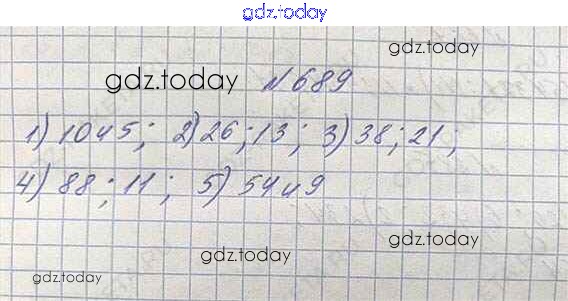 gdz.today
gdz.today
gdz.today № 689
1) 10 и 5; 2) 26; 13; 3) 38; 21;
4) 88; 11; 5) 54 и 9
gdz.today
gdz.today
gdz.today